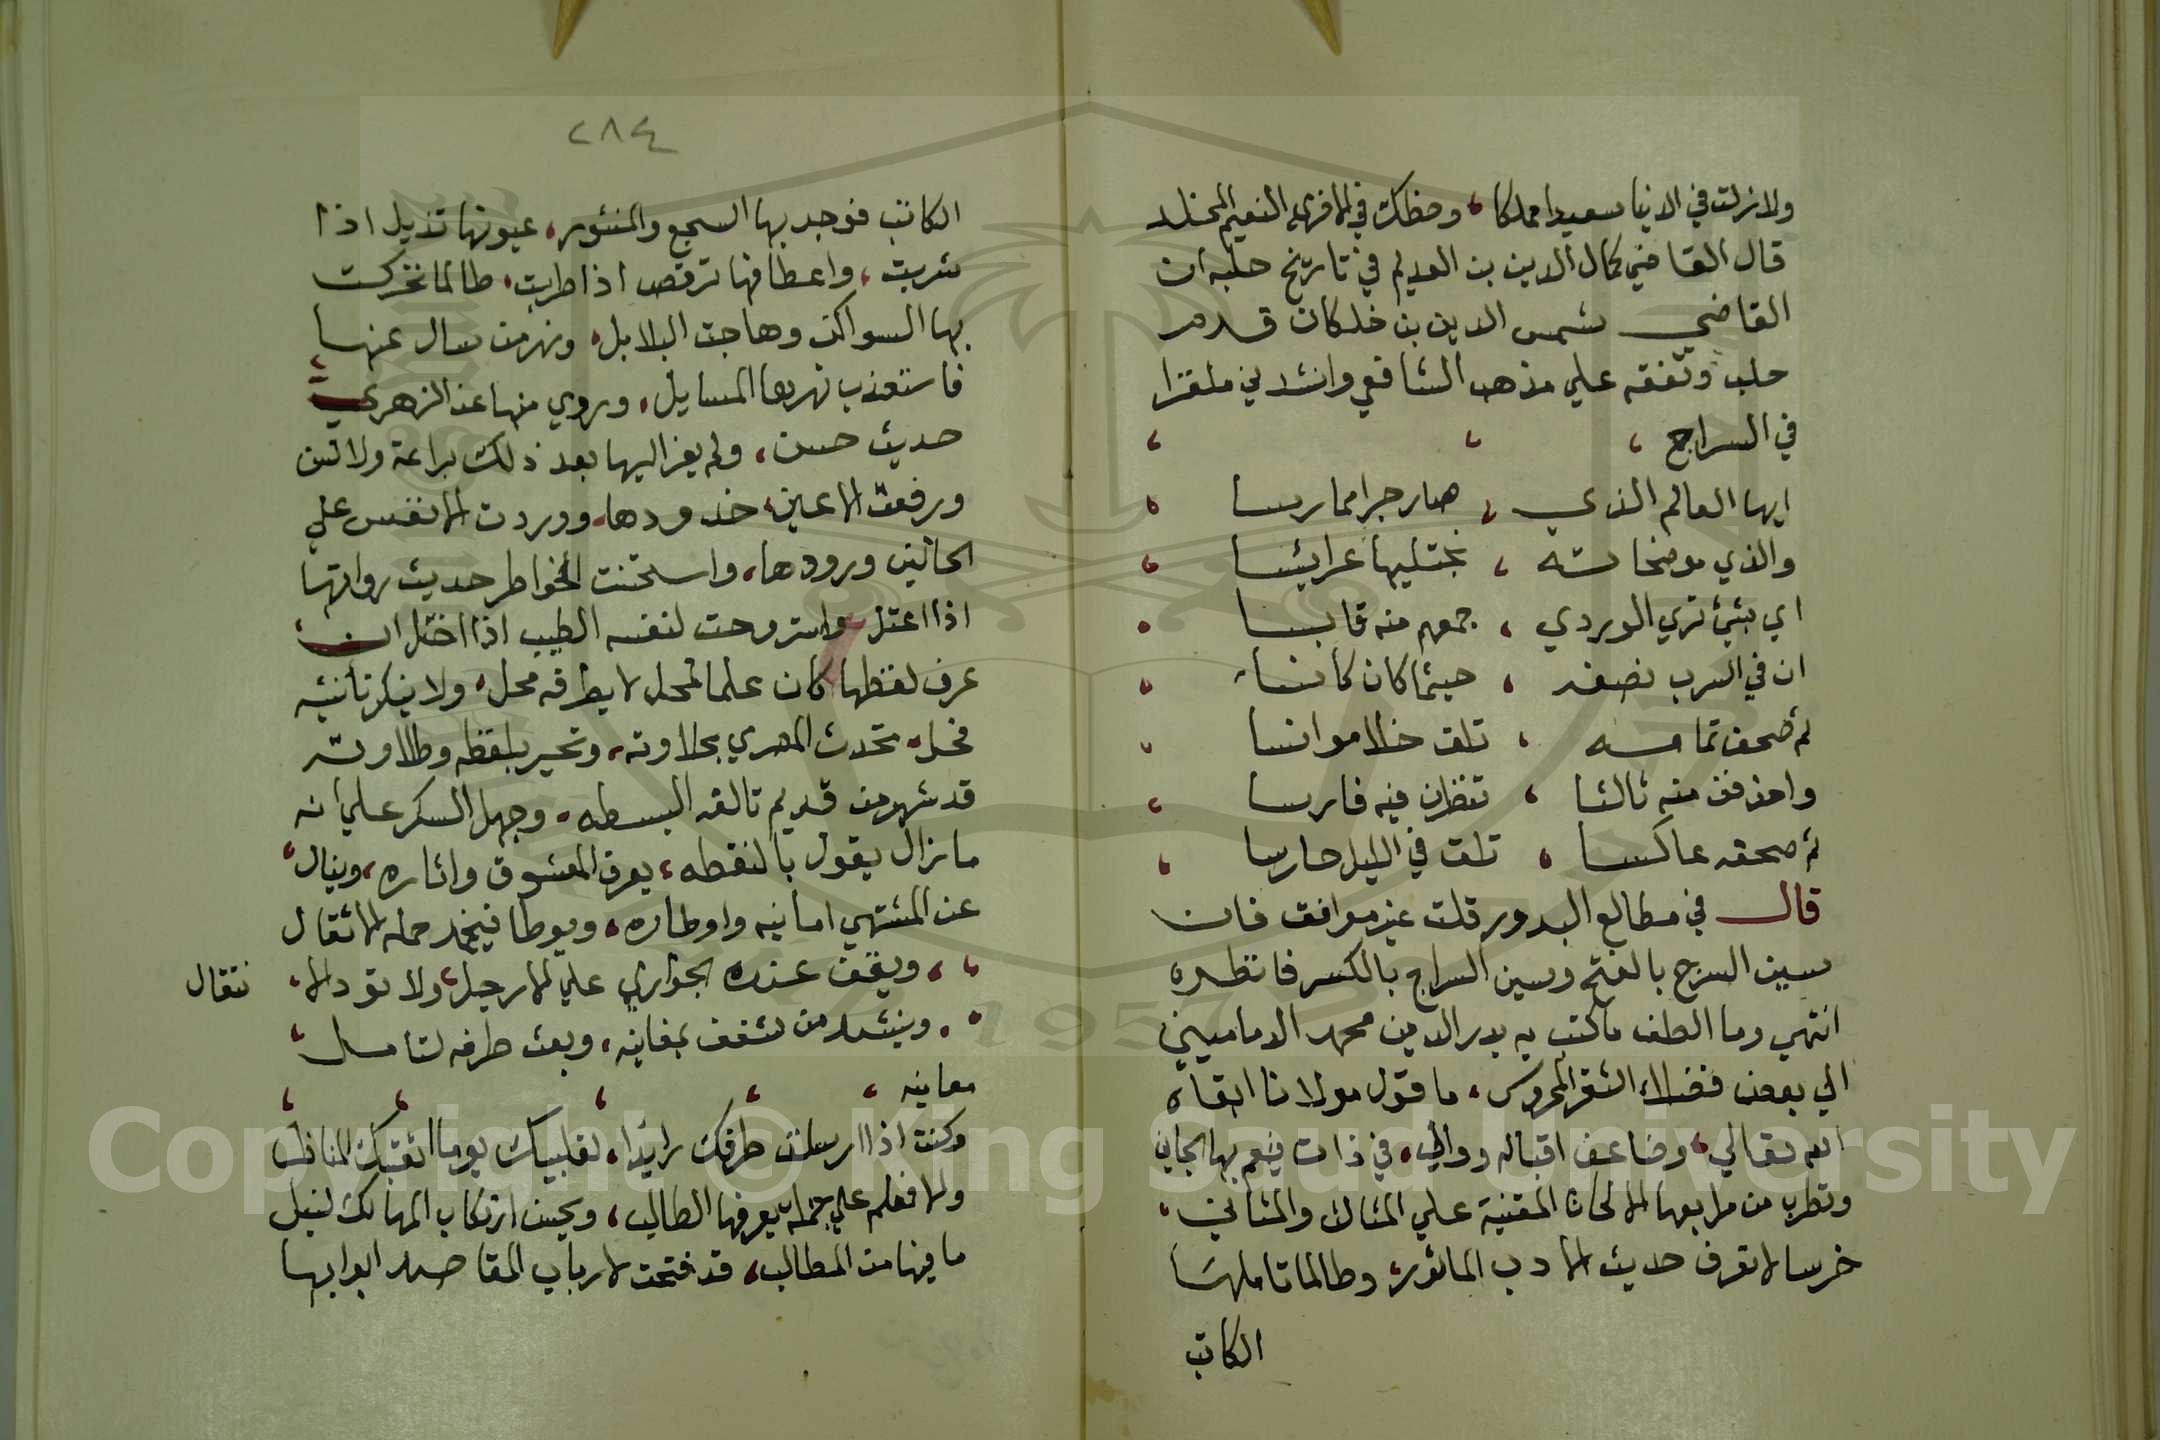 ولا زلت في الدنيا سعيدا مملكا، وحظك في الاخرى النعيم المخلد
قال القاضي كمال الدين بن العديم في تاريخ حلب ان
القاضي شمس الدين بن خلكان قدم
حلب وتفقه علي مذهب الشافعي وانشدني ملغزا
في السراج
ايها العالم الذي، صار حبرا ممارسا
والذي موضحاته، نجتليها عرايسا
اي شئ تري الوردي، جمعهم منه قابسا
ان في السرب نصفه، حيثما كان كانسا
ثم صحف تمامه، تلق خلا موانسا
واحذفن منه ثالثا، تنظرن فيه فارسا
ثم صحفه عاكسا، تلق في الليل حارسا
قال في مطالع البدور قلت غير موافق فان
سين السرج بالفتح وسين السراج بالكسر فانظره
انتهي وما الطف ما كتب به بدر الدين محمد الدماميني
الي بعض فضلاء الثغر المحروس، ما قول مولانا ابقاه
الله تعالي، وضاعف اقباله ووالي، في ذات ينعم بها الجاني
وتطرب من مرابعها الالحان المغنية علي المثالث والمثاني،
خرسا لا تعرف حديث الادب الماثور، وطالما تاملها
الكاتب
٢٨٤
الكاتب فوجد بها السجع والمنثور، عيونها تذبل اذا
شربت، واعطافها ترقص اذا طربت، طالما تحركت
بها السواكن وهاجت البلابل، ونهر من سال عنها
فاستعذب نهرها المسايل، وروي منها عن الزهري
حديث حسن، ولم يعز اليها بعد ذلك براعة ولا لسن
ورفعت الاعين خدودها، ووردت الانفس علي
الحالين ورودها، واستحسنت الخواطر حديث رواتها
اذا اعتل واستروحت لنفسه الطيب اذا اختل ان
عرف لفظها كان علما لمحل لا يطرقه محل، ولا ينكر تأنيثه
فحل، تحدث المصري بحلاوته، وتحير بلفظه وطلاوته
قد شهر من قديم تالفه البسطه، وجهل السكر علي انه
ما زال يقول بالنقطه، يعرف المعشوق واثاره، وينال
عن المشتهي امانيه واوطاره، ويوطا فيحمد حمله الاثقال
، ويقف عنده الجواري علي الارجل، ولا تود الا، نتقال
، وينشد من شغف بمغانيه، وبعث طرفه لتامل
معانيه
وكنت اذا ارسلت طرفك رايدا، لقلبك يوما اتعبتك المناظر
ولا فعلم علي جملة يعرفها الطالب، ويحسن ارتكاب المهالك لنيل
ما فيها من المطالب، قد فتحت لارباب المقاصد ابوابها
Copyright © King Saud University
1957